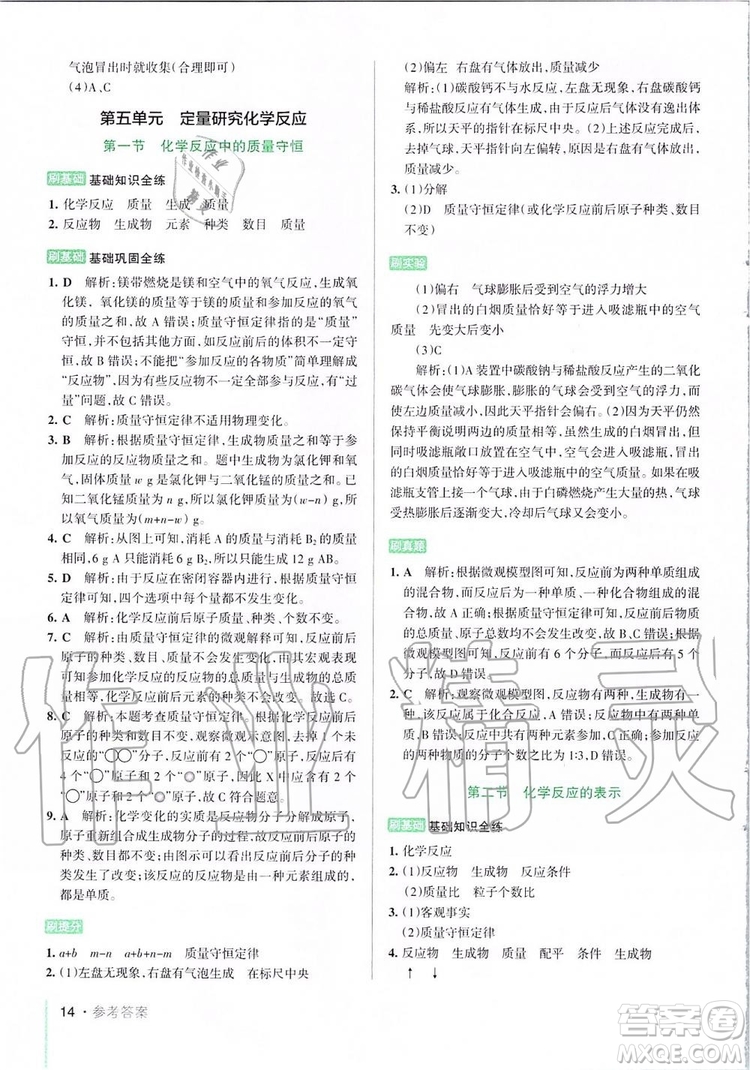 气泡冒出时就收集(合理即可)
(4)A、C
第五单元 定量研究化学反应
第一节 化学反应中的质量守恒
刷基础 基础知识全练
1. 化学反应 质量 生成 质量
2. 反应物 生成物 元素 种类 数目 质量
刷基础 基础巩固全练
1. D 解析:镁带燃烧是镁和空气中的氧气反应,生成氧
化镁,氧化镁的质量等于镁的质量和参加反应的氧气
的质量之和,故 A 错误;质量守恒定律指的是“质量”
守恒,而不是其他守恒,如反应前后的体积不一定守
恒,故 B 错误;不能把“参加反应的各物质”简单理解成
“反应物”,忽略了没有参加反应的物质,还要有“过
量”问题,故 C 错误。
2. C 解析:质量守恒定律不适用物理变化。
3. B 解析:根据质量守恒定律,生成物质量之和等于参
加反应的物质质量之和。题中生成物是氯化钾和氧
气,固体质量 w g 是氯化钾与二氧化锰的质量之和,
二氧化锰质量为 n g,所以氯化钾质量为(w-n) g,氧
气质量为(m+n-w) g。
4. C 解析:从图上可知,
6 g A 只能消耗 6 g B2。
5. D 解析:由于反应在密闭容器内进行,根据质量守恒
定律可知,四个选项中每个量都不发生改变。
6. A 解析:化学反应前后原子质量、种类、个数不变。
7. C 解析:由质量守恒定律的微观解释可知,反应前
后原子的种类、数目、质量不变,所以,其宏观表现
可知反应物的总质量和生成物的总质
量相等,化学反应前后元素的种类、质量不变。
8. C 解析:本题考查质量守恒定律,根据反应前后
原子的种类和数目不变,观察微观示意图,去掉未
反应的分子,则反应前有
4 个“○”原子和 2 个“○”原子,而 X 中只有
2 个“○”原子和 2 个“○”原子,
故 C 符合题意。
9. A 解析:化学变化的实质是反应物分子分解成原子,
原子重新组合成生成物分子的过程,变化前后分子的
种类一定改变;由图示可以看出反应前后分子的种类
发生了改变;该反应的反应物是两种物质,且两种物质
都是单质。
刷提分
1. a+b m-n a+b+n-m 质量守恒定律
2. (1)左盘无现象,右盘有气泡生成 在标尺中央
(2)偏左 右盘有气体放出
解析:(1)碳酸钙不与水反应,左盘无现象,右盘碳酸钙
与稀盐酸反应有气体生成。由于气体没有逸出体系,
所以质量守恒,天平的指针在标尺中央。(2)由于
去掉气球,天平指针向左偏转,是因为右盘有气体放
出,质量减少。
3. (1)分解
(2)D 质量守恒定律(或化学反应前后原子种类、数目
不变)
刷实验
(1)偏右 气球膨胀后受到空气的浮力增大
(2)冒出的白烟质量恰好等于进入吸滤瓶中的空气
质量 先变大后变小
(3)C
解析:(1)A 装置中碳酸钠与稀盐酸反应产生的二氧化
碳气体会使气球膨胀,膨胀的气球受到空气的浮力,使
左边质量减小,因此天平指针会偏右。(2)因天平仍然
保持平衡说明两边的质量相等,虽然有白烟冒出,但
同时吸滤瓶敞口放置在空气中,冒出的白烟质量恰
好等于进入吸滤瓶中空气的质量。如果用气球套在吸
滤瓶支管上进行实验,由于白磷燃烧产生热量,气球
受热先变大,最后变小。
刷真题
1. A 解析:根据微观模型图可知,反应前为两种单质组成
的混合物,而反应后为一种化合物和一种单质组成
的混合物,故 A 正确;根据质量守恒定律可知,反应物
的总质量、原子总数均不会发生改变,故 B、C 错误;根据
微观模型图可知,生成物有两种,D 错误。
2. C 解析:观察微观模型图,反应物有两种,生成物有
一种,该反应属于化合反应,A 错误;生成物是化合物,
B 错误;反应物中共有两种元素参加反应,C 正确;参加
反应的两种物质的分子个数之比为 1:3,D 错误。
第二节 化学反应的表示
刷基础 基础知识全练
1. 化学反应
2. (1)反应物 生成物 反应条件
(2)质量比 粒子个数
3. (1)客观事实
(2)质量守恒定律
4. 反应物 生成物 质量 配平 条件 生成物
↑ ↓
14 · 参考答案
作业精灵
答案圈
MXQE.COM